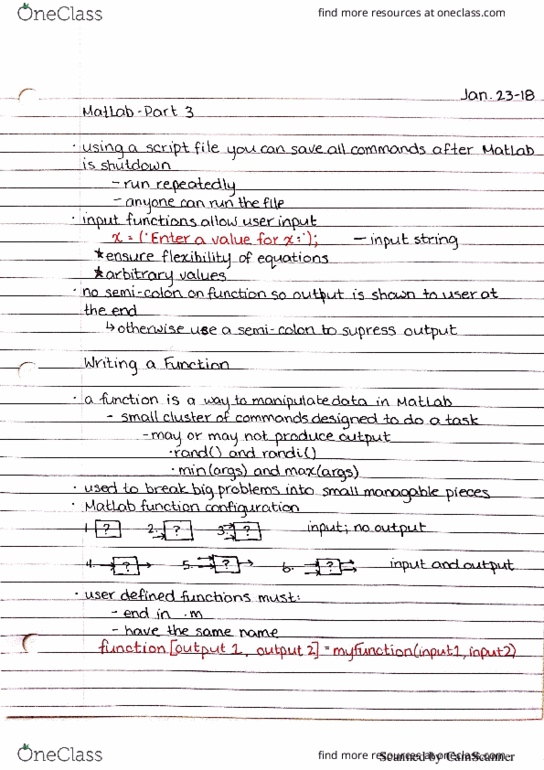 OneClass find more resources at oneclass.com
Jan. 23-18
MatLab-Part 3
· using a script file you can save all commands after MatLab
is shutdown
- run repeatedly
- anyone can run the file
· input functions allow user input
x = ('Enter a value for x:'); - input string
★ensure flexibility of equations
★arbitrary values
· no semi-colon on function so output is shown to user at
the end
↳otherwise use a semi-colon to supress output
Writing a Function
· a function is a way to manipulate data in MatLab
- small cluster of commands designed to do a task
- may or may not produce output
·rand() and randi()
·min(args) and max(args)
· used to break big problems into small managable pieces
· Matlab function configuration
1. ? 2. ? 3. ? input; no output
4. ? 5. ? 6. ? input and output
· user defined functions must:
- end in .m
- have the same name
function [output 1, output 2] = myfunction(input1, input2)
OneClass find more resources at oneclass.com
Scanned by CamScanner